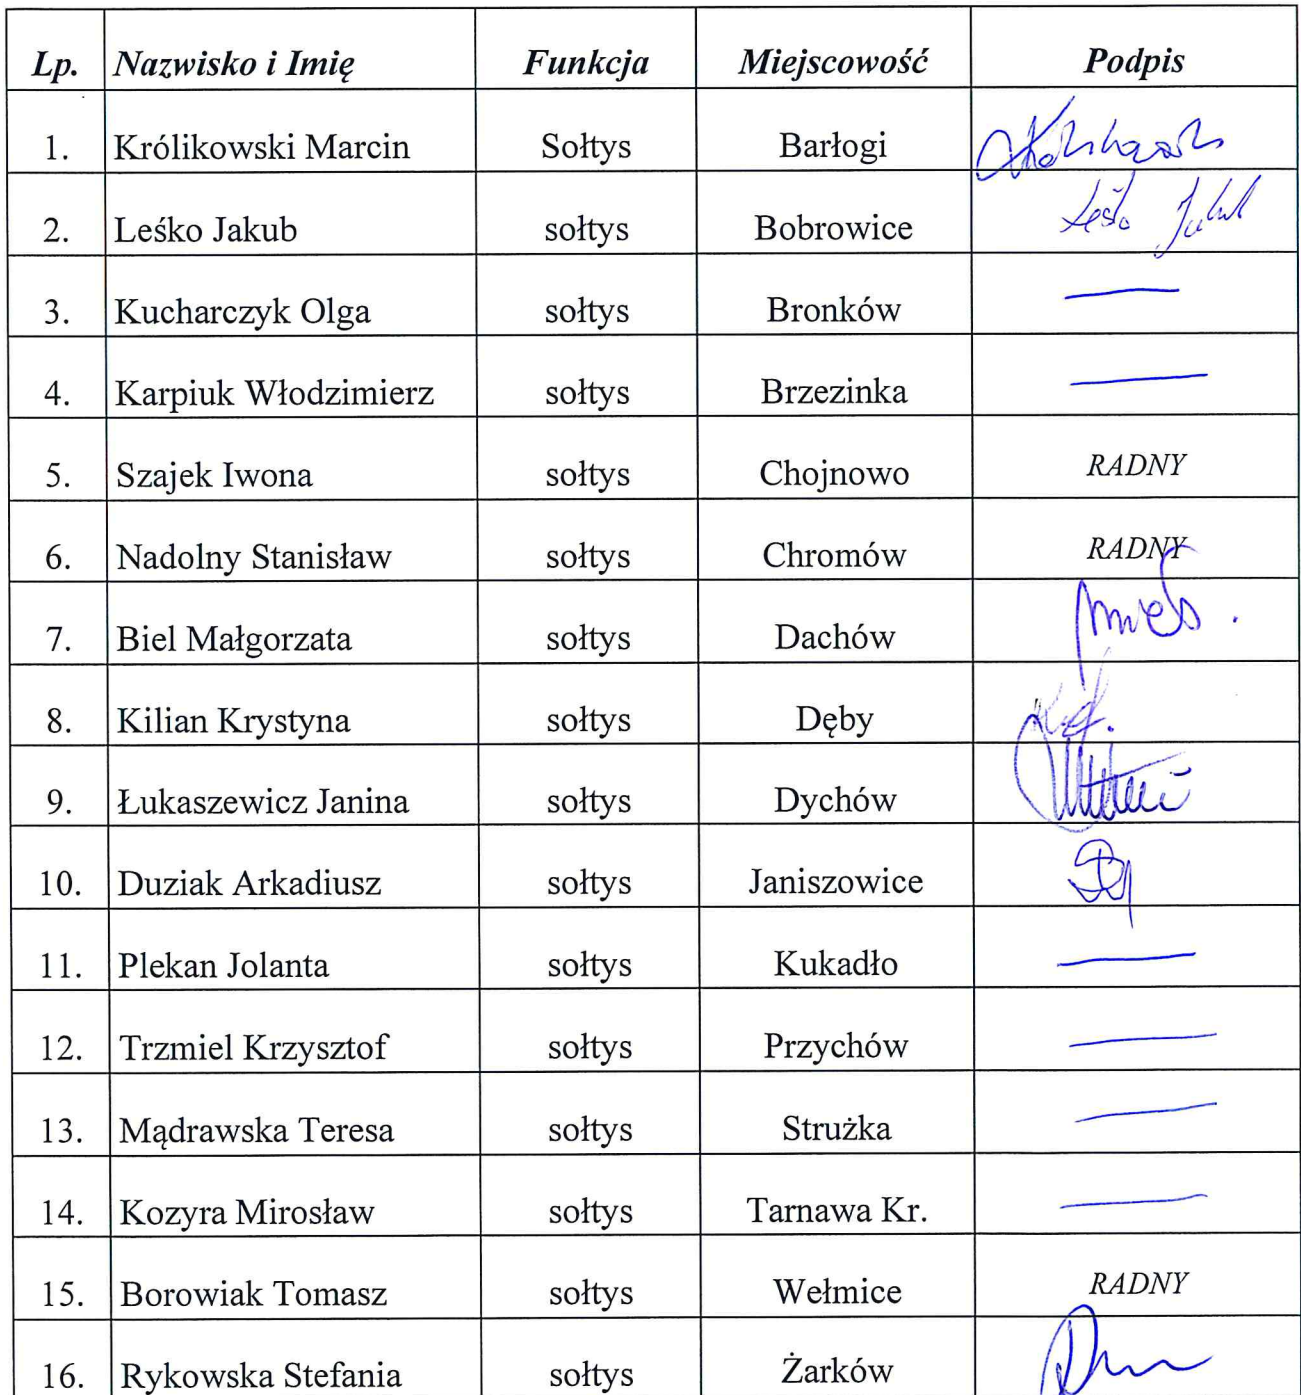 Lp. Nazwisko i Imię Funkcja Miejscowość Podpis
1. Królikowski Marcin Sołtys Barłogi
2. Leśko Jakub sołtys Bobrowice Leśko Jakub
3. Kucharczyk Olga sołtys Bronków —
4. Karpiuk Włodzimierz sołtys Brzezinka —
5. Szajek Iwona sołtys Chojnowo RADNY
6. Nadolny Stanisław sołtys Chromów RADNY
7. Biel Małgorzata sołtys Dachów
8. Kilian Krystyna sołtys Dęby
9. Łukaszewicz Janina sołtys Dychów
10. Duziak Arkadiusz sołtys Janiszowice
11. Plekan Jolanta sołtys Kukadło —
12. Trzmiel Krzysztof sołtys Przychów —
13. Mądrawska Teresa sołtys Strużka —
14. Kozyra Mirosław sołtys Tarnawa Kr. —
15. Borowiak Tomasz sołtys Wełmice RADNY
16. Rykowska Stefania sołtys Żarków